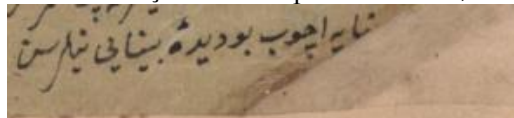 نمایه اچوب بو دیدهٔ بینایی نیلرسن